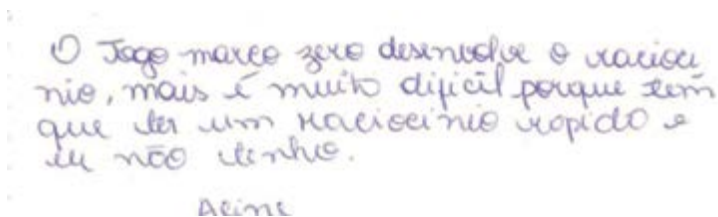 O Jogo marco zero desenvolve o racioci
nio, mais é muito dificil porque tem
que ter um raciocinio rapido e
eu não tenho.
Aline